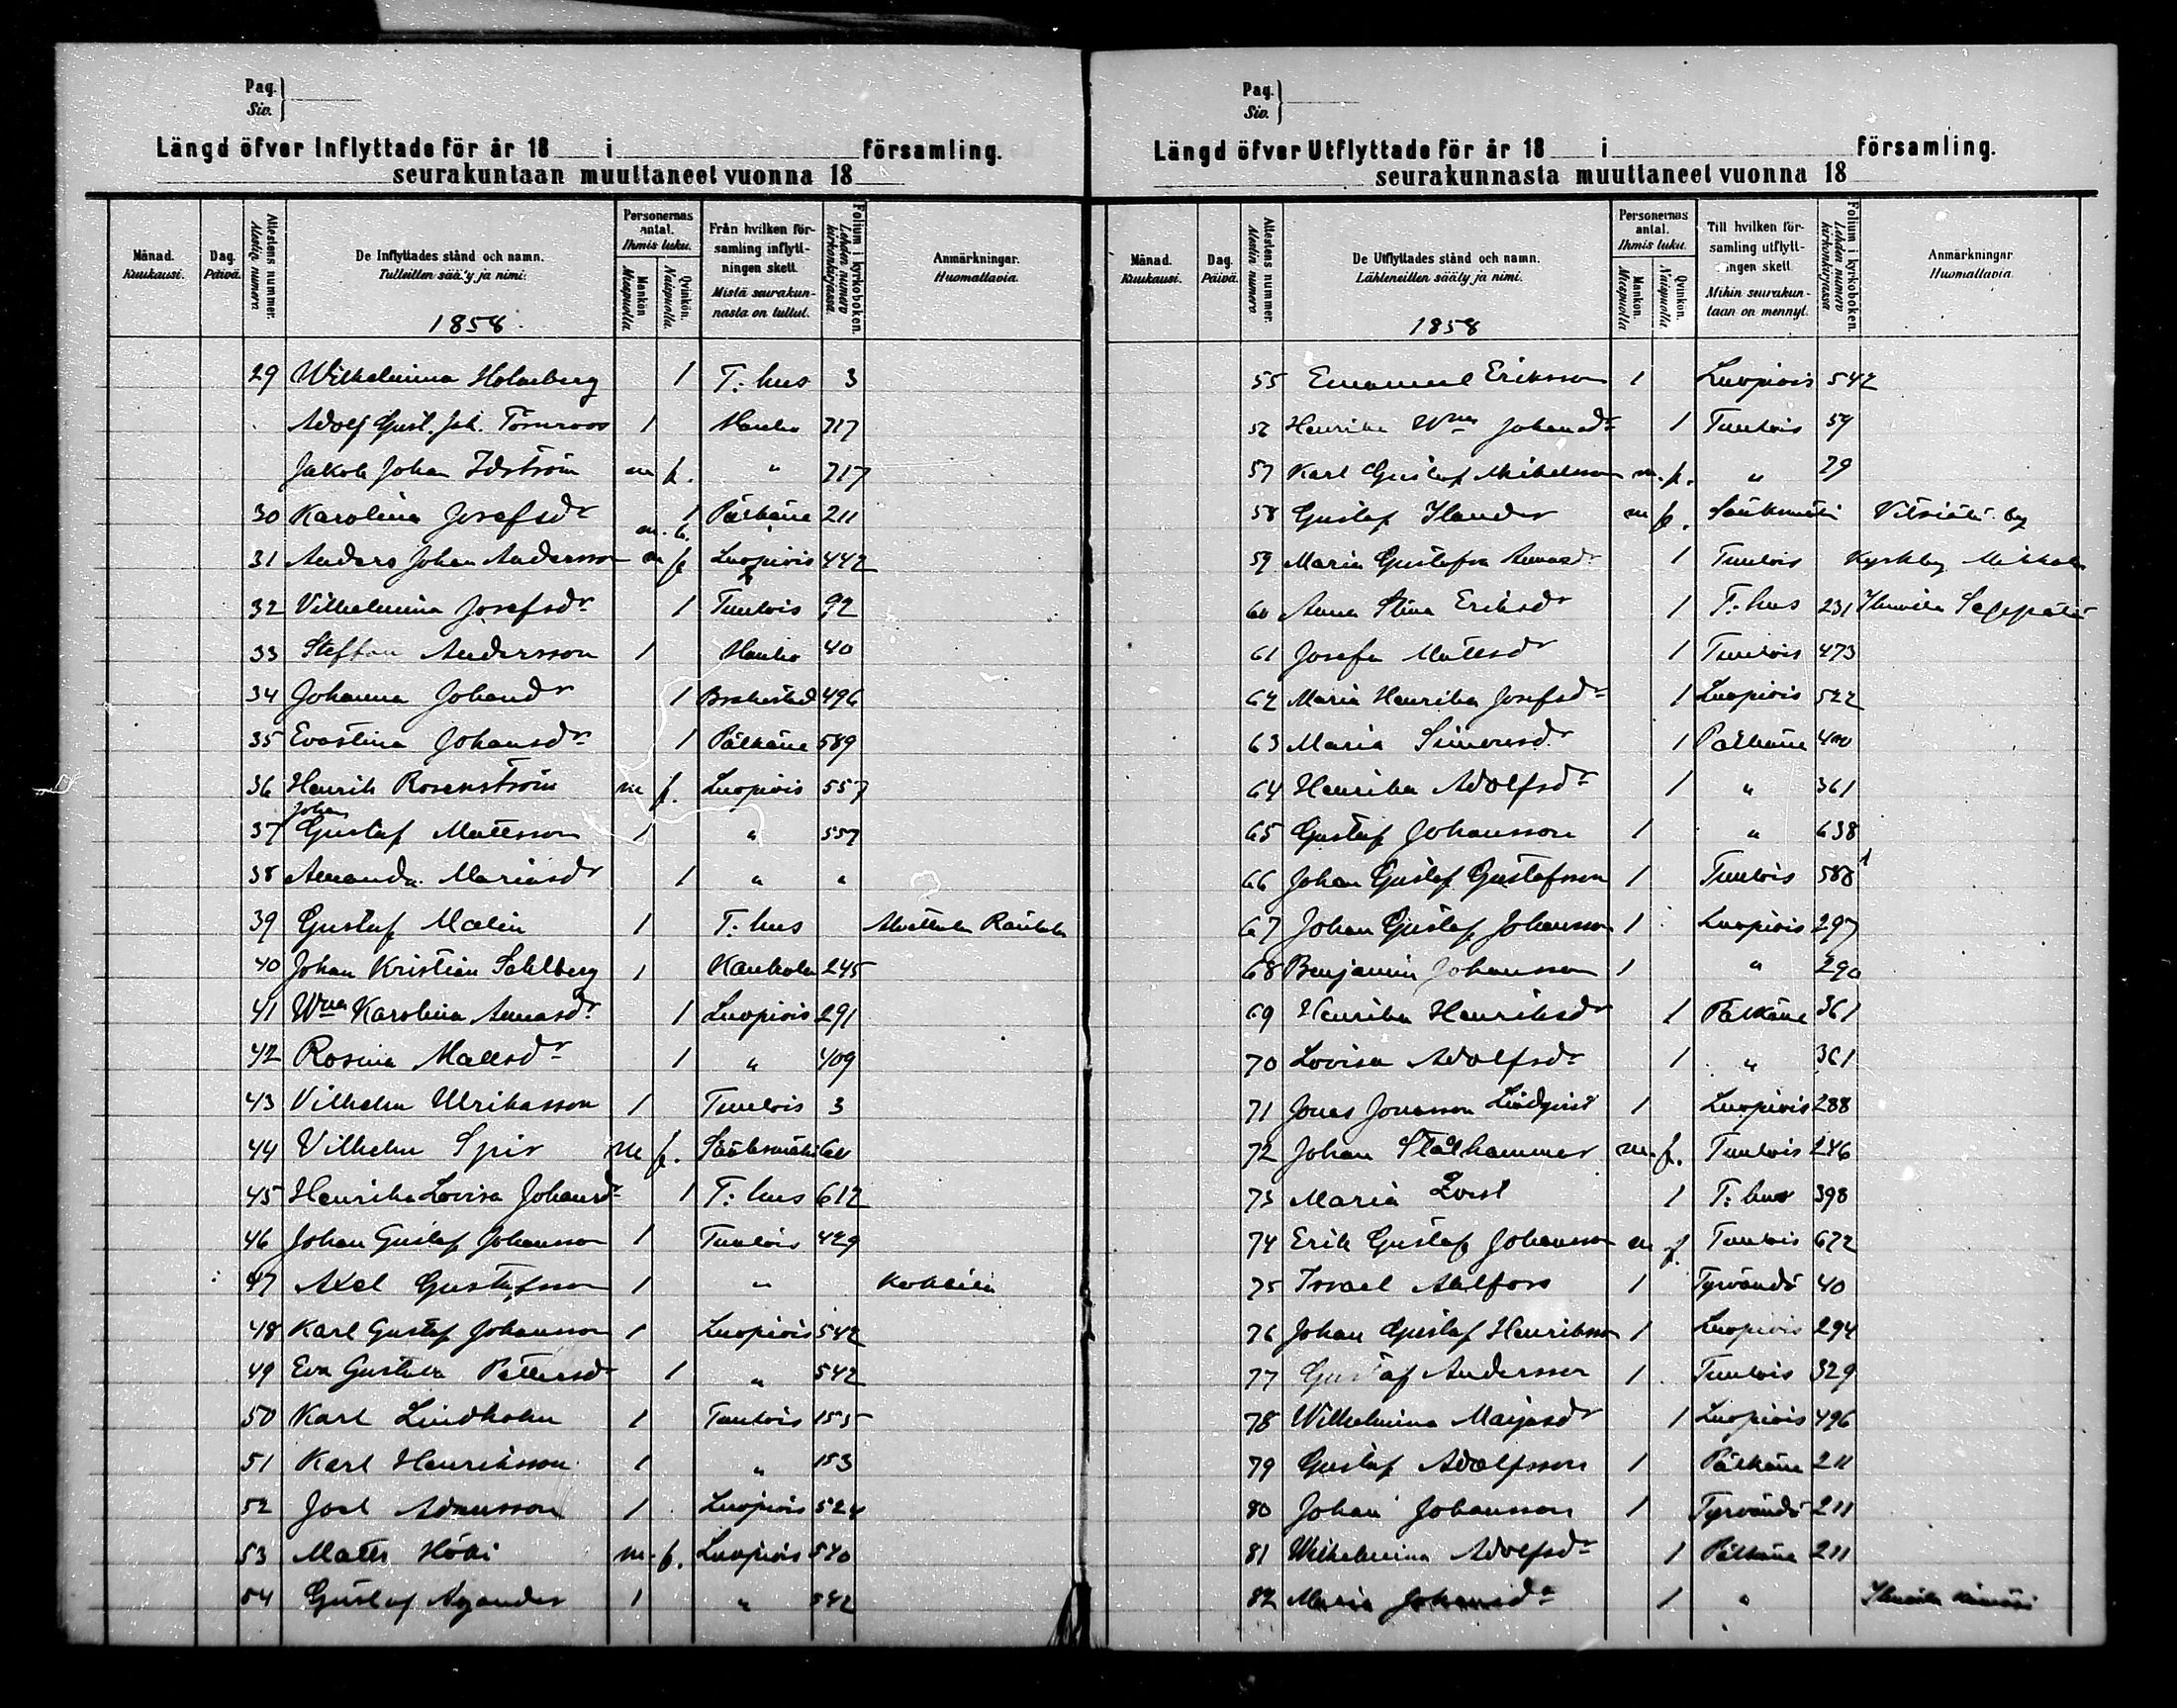 Pag.
Siv.
Längd öfver Inflyttade för år 18 i församling.
seurakuntaan muuttaneet vuonna 18
Månad. Kuukausi.
Dag. Päivä.
Attestens nummer. Alestin numero
De Inflyttades stånd och namn. Tulleitten sääty ja nimi:
Personernas antal. Ihmis luku.
Mankön Miespuolia
Qvinkön. Naispuolia
Från hvilken församling inflyttningen skett. Mistä seurakunnasta on tullut.
Folium i kyrkoboken. Lehden numero kirkonkirjassa.
Anmärkningar. Huomattavia.
1858.
29 Wilhelmina Holmberg 1 T:hus 3
Adolf Gust. Joh. Törnroos 1 Hauho 717
Jakob Johan Idström m f. " 717
30 Karolina Josefsdr 1 Pälkäne 211
31 Anders Johan Andersson m f Luopiois 442
32 Vilhelmina Josefsdr 1 Tuulois 92
33 Steffan Andersson 1 Hauho 40
34 Johanna Johansdr 1 Brahestad 496
35 Evastina Johansdr 1 Pälkäne 589
36 Henrik Rosenström m f. Luopiois 557
37 Johan Gustaf Mattsson 1 " 557
38 Amanda Mariasdr 1 " "
39 Gustaf Malin 1 T:hus
40 Johan Kristian Sahlberg 1 Kanhola 245
41 Wma Karolina Annasdr 1 Luopiois 291
42 Rosina Mattsdr 1 " 409
43 Vilhelm Ulrikasson 1 Tuulois 3
44 Vilhelm Spir m f. Sääksmäki
45 Henrika Lovisa Johansdr 1 T:hus 612
46 Johan Gustaf Johansson 1 Tuulois 429
47 Axel Gustafsson 1 "
48 Karl Gustaf Johansson 1 Luopiois 542
49 Eva Gustava Pettersdr 1 " 542
50 Karl Lindholm 1 Tuulois 153
51 Karl Henriksson 1 " 153
52 Joel Adamsson 1 Luopiois 524
53 Matts Höki m. f. Luopiois 540
54 Gustaf Nyander 1 " 542
Pag.
Siv.
Längd öfver Utflyttade för år 18 i församling.
seurakunnasta muuttaneet vuonna 18
Månad. Kuukausi.
Dag. Päivä.
Attestens nummer. Alestin numero
De Utflyttades stånd och namn. Lähteneitten sääty ja nimi.
Personernas antal. Ihmis luku.
Mankön. Miespuolia
Qvinkön. Naispuolia
Till hvilken församling utflyttningen skett. Mihin seurakuntaan on mennyt.
Folium i kyrkoboken. Lehden numero kirkonkirjassa
Anmärkningar Huomattavia.
1858
55 Emanuel Eriksson 1 Luopiois 542
56 Henrika Wma Johansdr 1 Tuulois 59
57 Karl Gustaf Mikelsson m. f. " 79
58 Gustaf Ilander m f. Sääksmäki by
59 Maria Gustafva Annasdr 1 Tuulois Kyrkby Mikkola
60 Anna Stina Eriksdr 1 T:hus 231
61 Josefa Mattsdr 1 Tuulois 473
62 Maria Henrika Josefsdr 1 Luopiois 522
63 Maria Simonsdr 1 Pälkäne 400
64 Henrika Adolfsdr 1 " 361
65 Gustaf Johansson 1 " 638
66 Johan Gustaf Gustafsson 1 Tuulois 588
67 Johan Gustaf Johansson 1 Luopiois 297
68 Benjamin Johansson 1 " 290
69 Henrika Henriksdr 1 Pälkäne 361
70 Lovisa Adolfsdr 1 " 361
71 Jonas Jonasson Lindqvist 1 Luopiois 288
72 Johan Stålhammer m. f. Tuulois 246
73 Maria Qvist 1 T:hus 398
74 Erik Gustaf Johansson m f. Tuulois 672
75 Israel Ahlfors 1 Tyrvändö 40
76 Johan Gustaf Henriksson 1 Luopiois 294
77 Gustaf Andersson 1 Tuulois 329
78 Wilhelmina Maijasdr 1 Luopiois 496
79 Gustaf Adolfsson 1 Pälkäne 211
80 Johan Johansson 1 Tyrvändö 211
81 Wilhelmina Adolfsdr 1 Pälkäne 211
82 Maria Johansdr 1 "